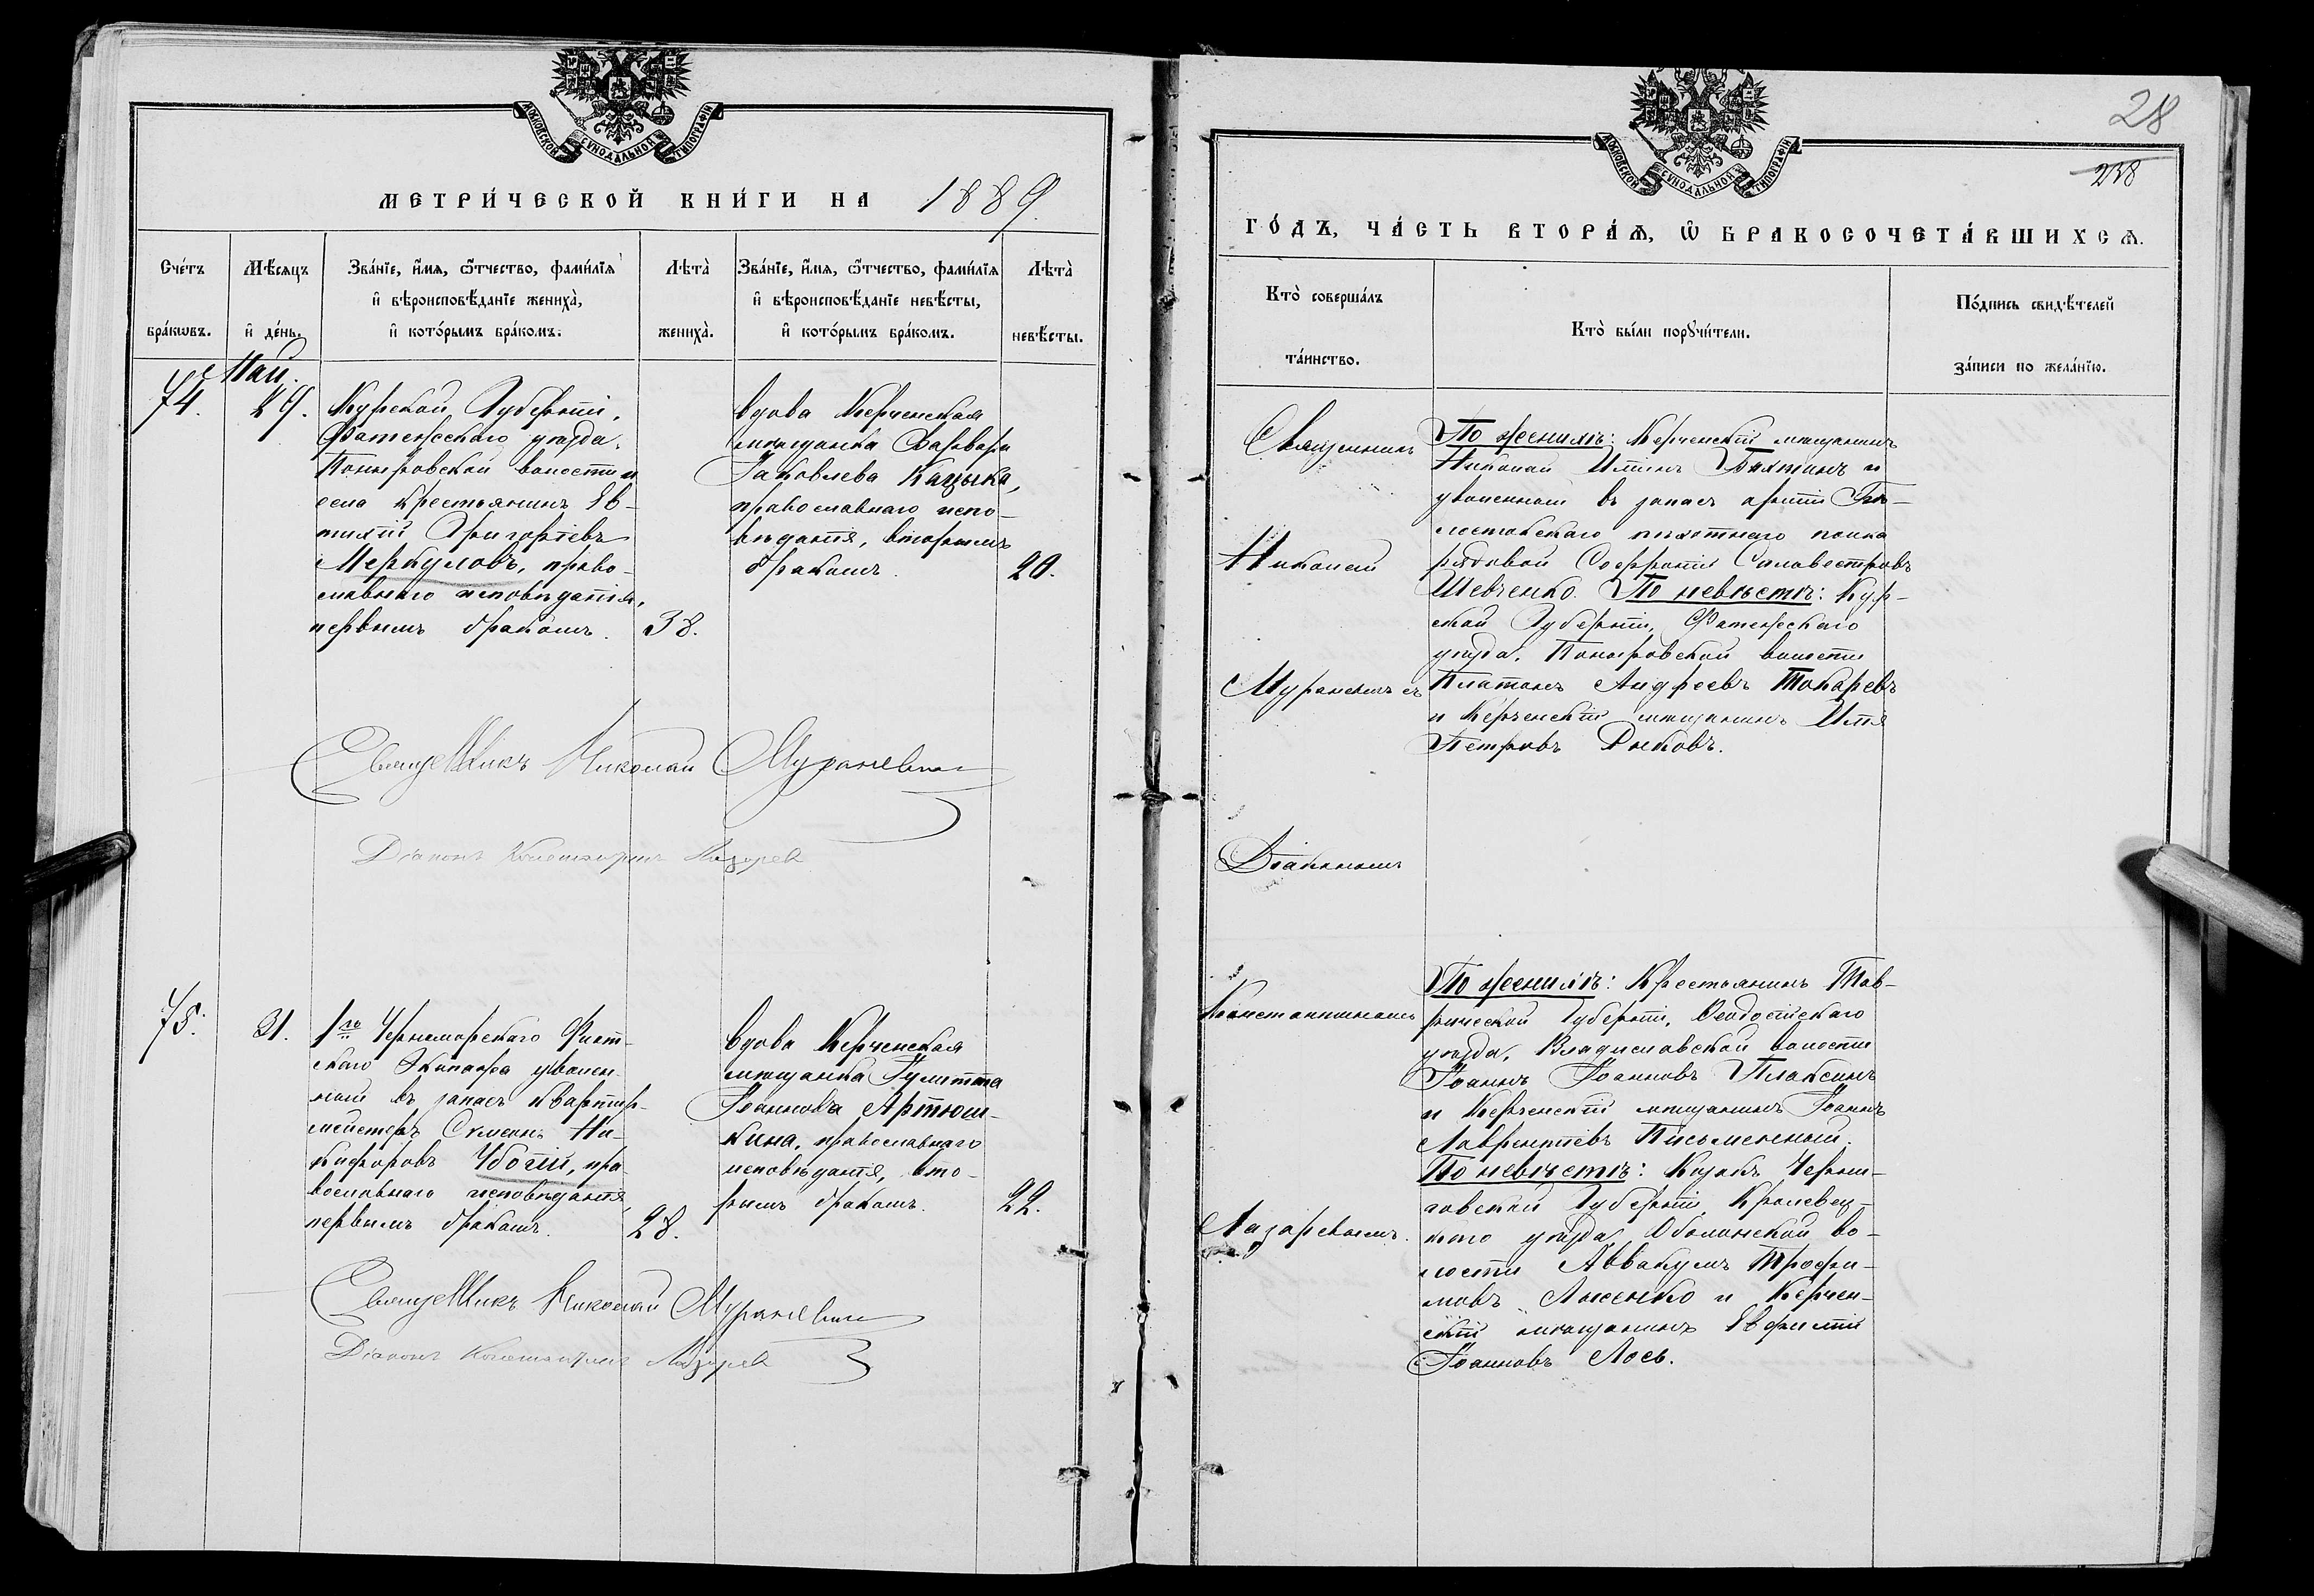 МОСКОВСКОЙ СѴНОДАЛЬНОЙ ТИПОГРАФІИ
МЕТРИ́ЧЕСКОЙ КНИ́ГИ НА 1889
Сче́тъ
бра́кѡвъ.
Мѣ́сяцъ
и҆ де́нь.
Зва́нїе, и҆́мѧ, ѻ҆́тчество, фами́лїѧ
и҆ вѣроисповѣ́данїе жениха̀,
и҆ кото́рымъ бра́комъ.
Лѣта̀
жениха̀.
Зва́нїе, и҆́мѧ, ѻ҆́тчество, фами́лїѧ
и҆ вѣроисповѣ́данїе невѣ́сты,
и҆ кото́рымъ бра́комъ.
Лѣта̀
невѣ́сты.
Май.
74.
29.
Курской Губерніи,
Фатежскаго уѣзда,
Поныровской волости и
села крестьянинъ Ев-
тихій Григоріевъ
Меркуловъ, право-
славнаго исповѣданія,
первымъ бракомъ.
38.
вдова Керченская
мѣщанка Варвара
Іаковлева Кацыка,
православнаго испо-
вѣданія, вторымъ
бракомъ.
20.
Священникъ Николай Мураневичъ
Діаконъ Константинъ Лазарев
75.
31.
1го Черноморскаго Флот-
скаго Экипажа уволен-
ный въ запасъ квартир-
мейстеръ Симеонъ Ни-
кифоровъ Убогій, пра-
вославнаго исповѣданія,
первымъ бракомъ.
28.
вдова Керченская
мѣщанка Іулитта
Іоаннова Артюш-
кина, православнаго
исповѣданія, вто-
рымъ бракомъ.
22.
Священникъ Николай Мураневичъ
Діаконъ Константинъ Лазарев
28
238
МОСКОВСКОЙ СѴНОДАЛЬНОЙ ТИПОГРАФІИ
ГО́ДЪ, ЧА́СТЬ ВТОРА́Ѧ, Ѡ҆ БРАКОСОЧЕТА́ВШИХСѦ.
Кто̀ соверша́лъ
та́инство.
Кто̀ бы́ли порꙋчи́тели.
По́дпись свидѣ́телей
за́писи по жела́нїю.
Священникъ
Николай
Мураневичъ съ
Діакономъ
Константиномъ
Лазаревымъ.
По женихѣ: Керченскій мѣщанинъ
Николай Ильинъ и
уволенный въ запасъ арміи Бѣ-
лостокскаго пѣхотнаго полка
рядовой Софроній Силовестровъ
Шевченко. По невѣстѣ: Кур-
ской Губерніи, Фатежскаго
уѣзда, Поныровской волости
Платонъ Андреевъ Токаревъ
и Керченскій мѣщанинъ Илія
Петровъ Рыковъ.
По женихѣ: Крестьянинъ Тав-
рической Губерніи, Ѳеодосійскаго
уѣзда, Владиславской волости
Іоаннъ Іоанновъ Плаксинъ
и Керченскій мѣщанинъ Іоаннъ
Лаврентіевъ Письменный.
По невѣстѣ: Козакъ Черни-
говской Губерніи, Кролевец-
каго уѣзда, Оболонской во-
лости Аввакумъ Трофи-
мовъ Лысенко и Керчен-
скій мѣщанинъ Евфимій
Іоанновъ Лось.